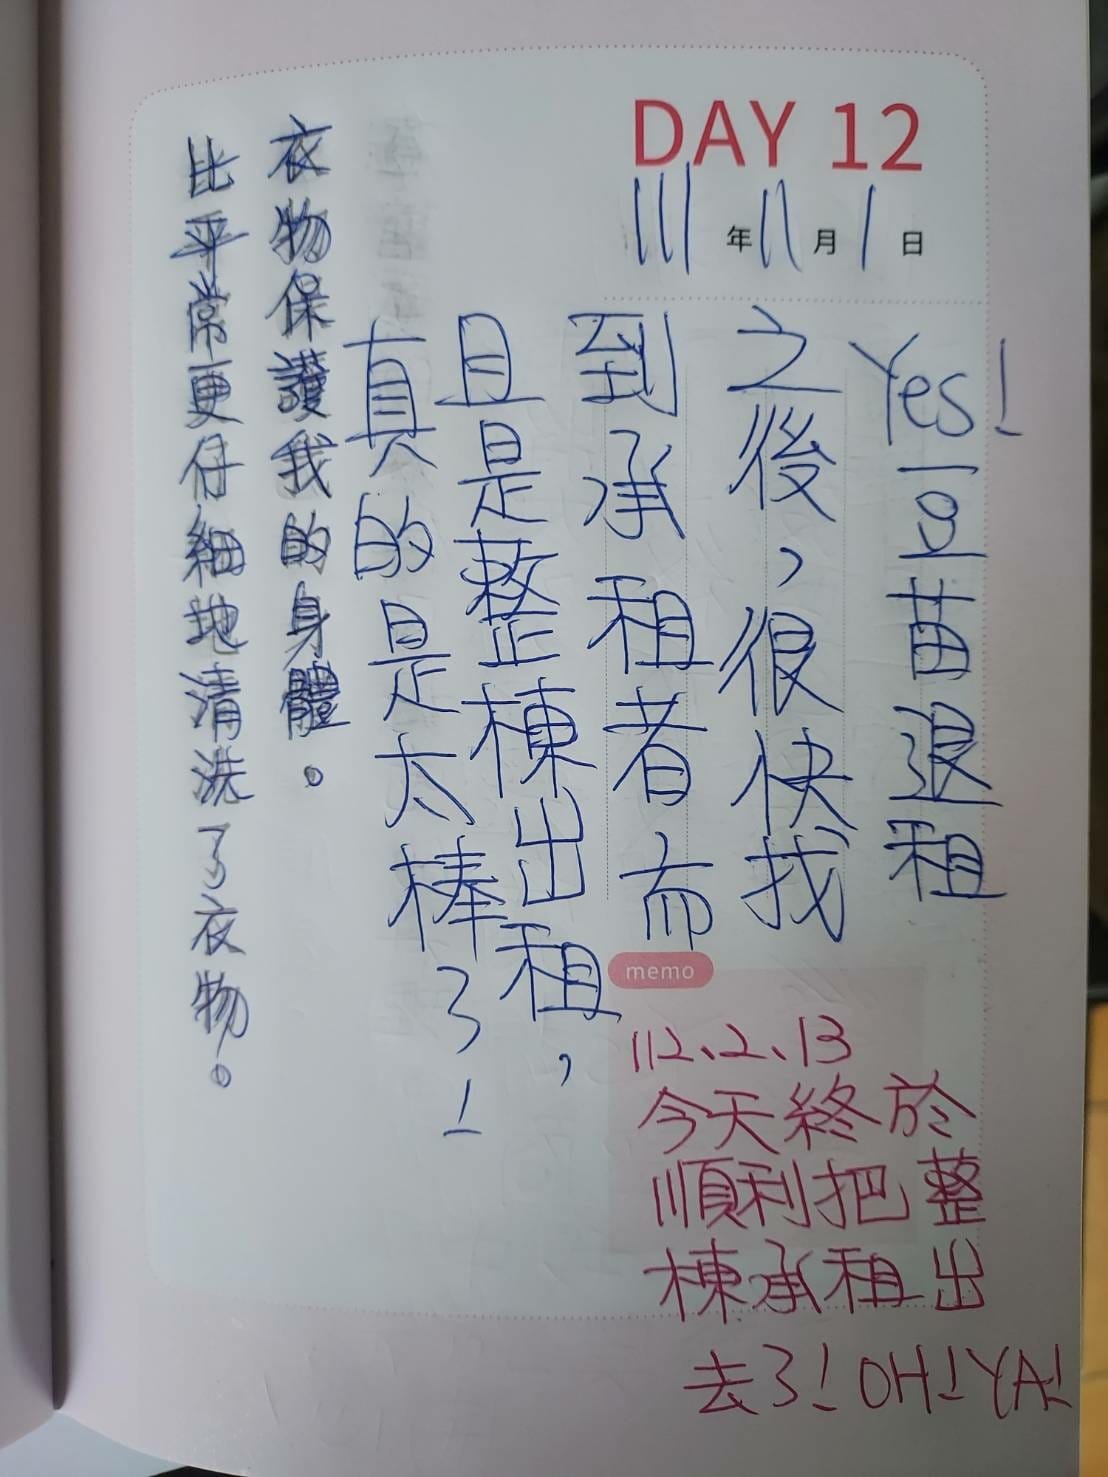 DAY 12
111年11月1日
Yes!一豆苗退租
之後,很快找
到承租者而
且是整棟出租,
真的是太棒了!
衣物保護我的身體。
比平常更仔細地清洗了衣物。
memo
112、2、13
今天終於
順利把整
棟承租出
去了!OH!YA!